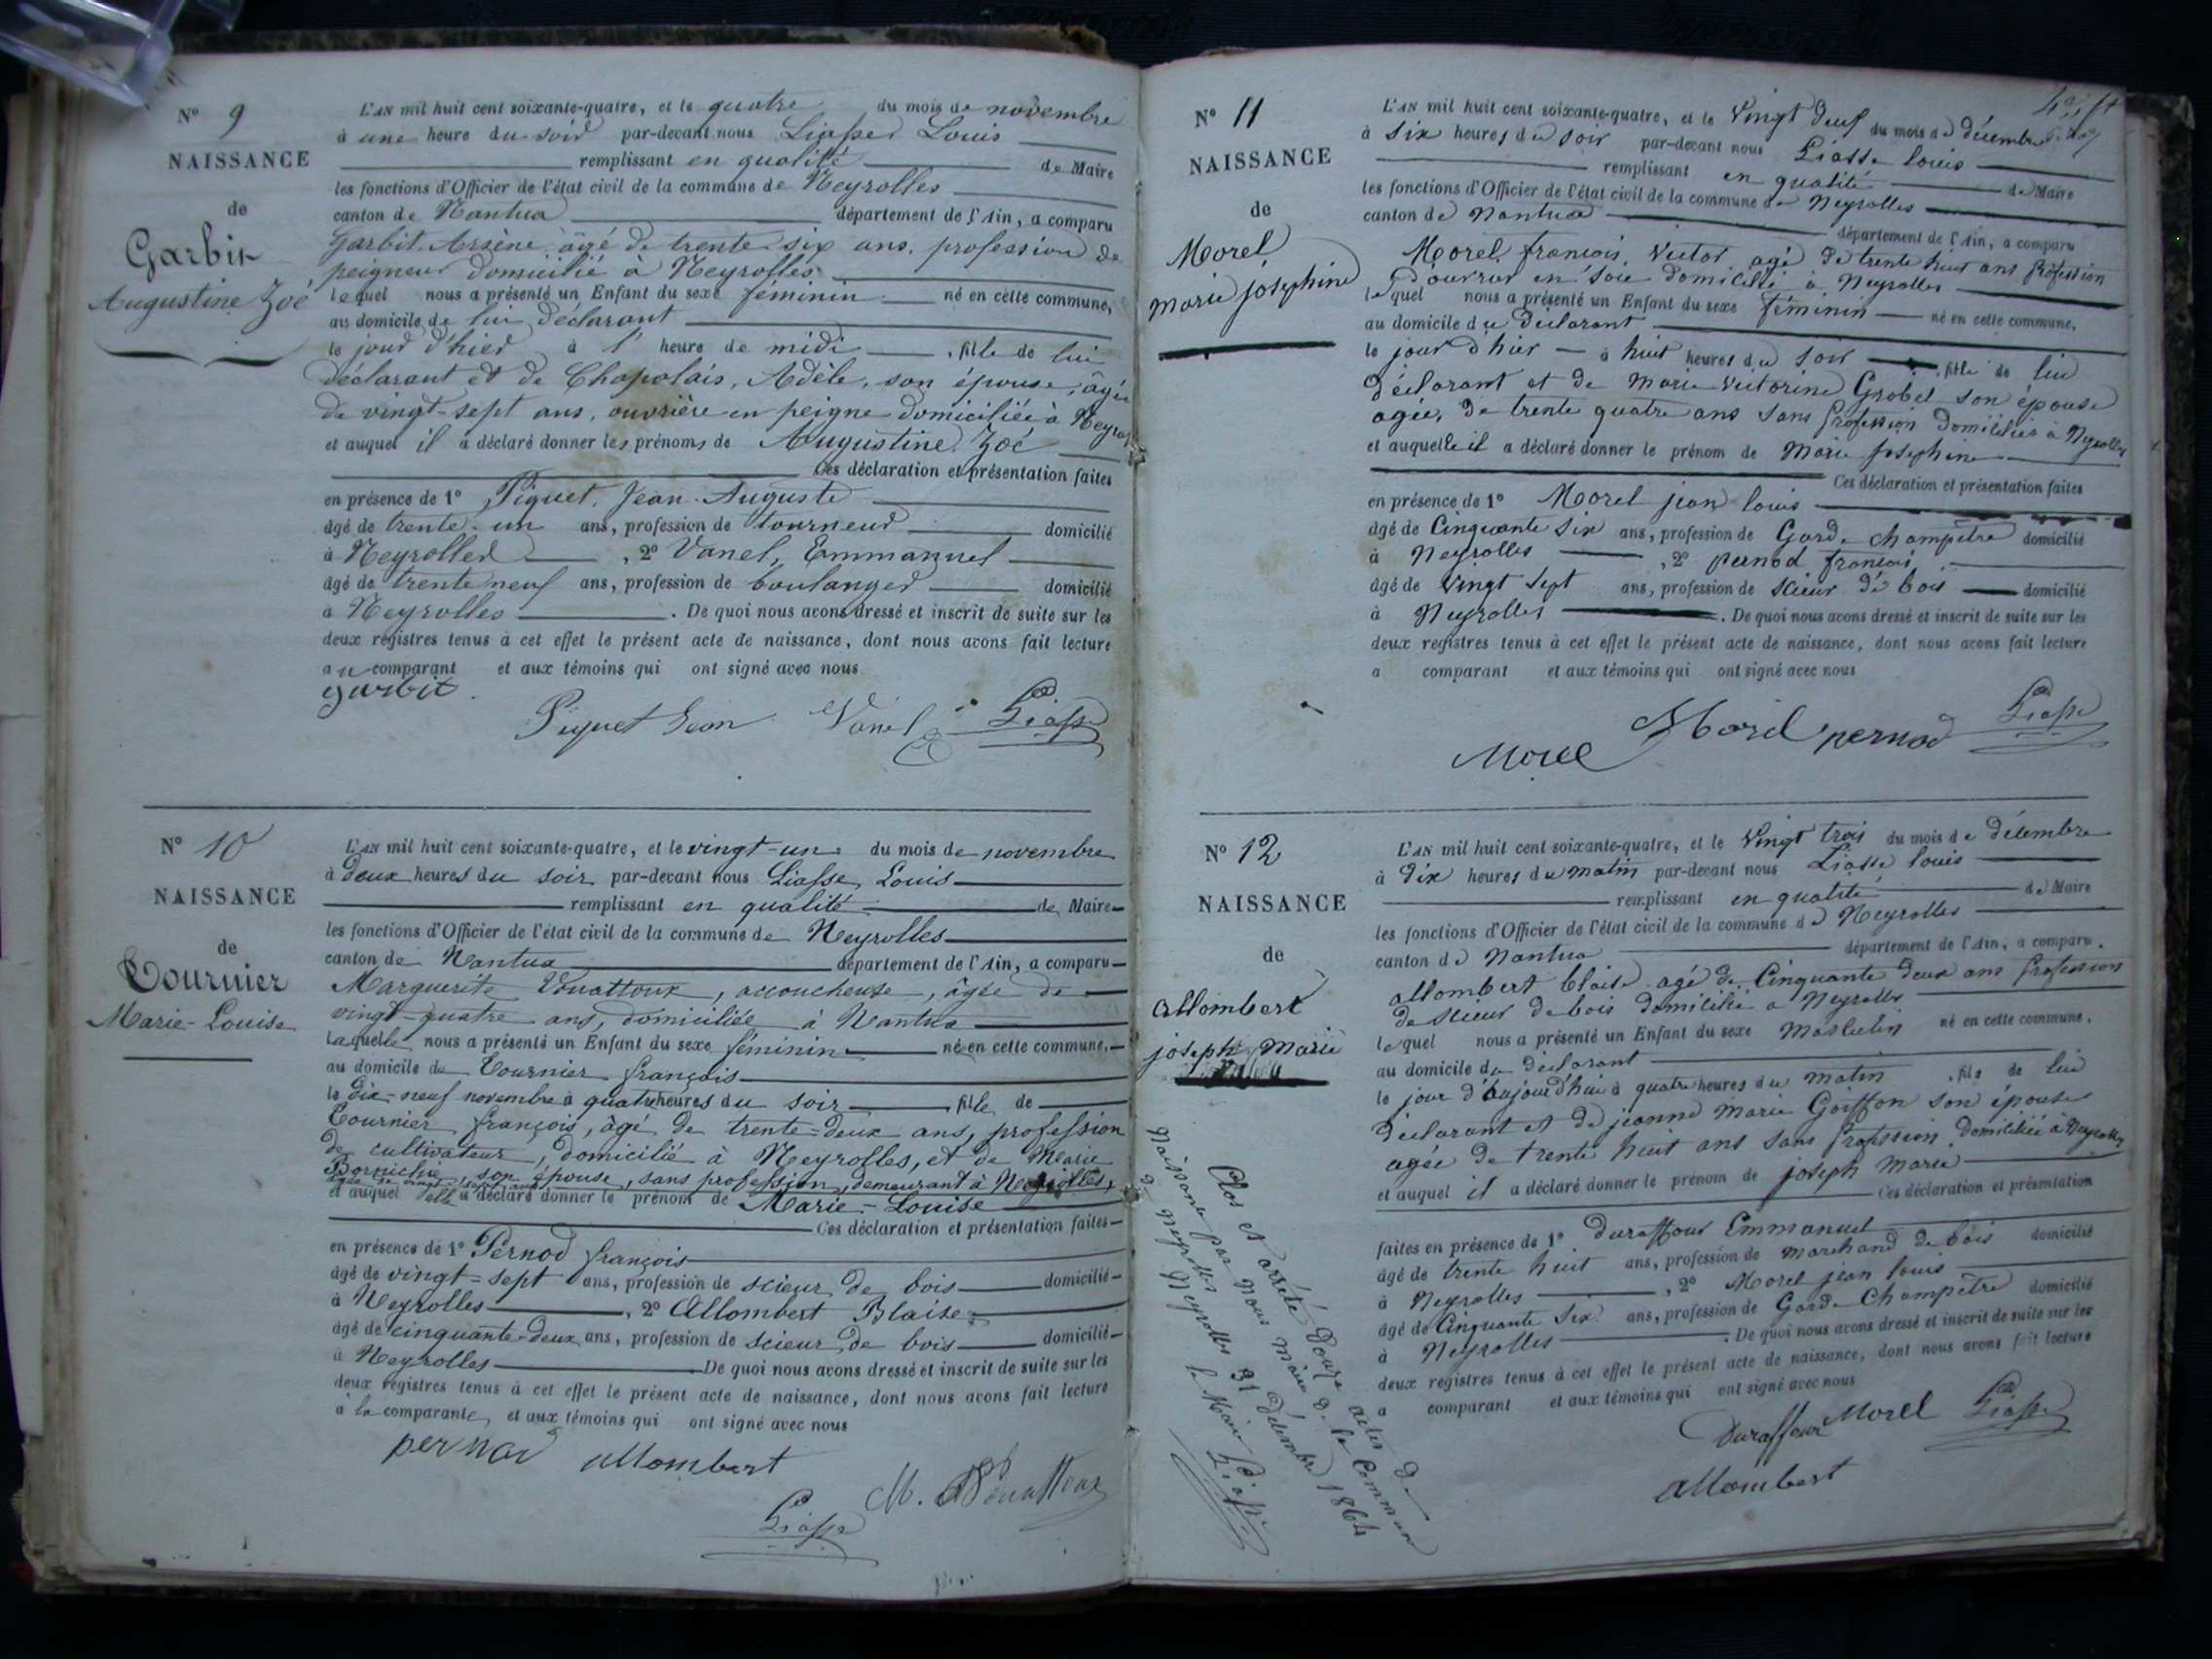 N° 9
NAISSANCE
de
Garbit
Augustine Zoé
L'AN mil huit cent soixante-quatre, et le quatre du mois de novembre
à une heure du soir par-devant nous Liasse Louis
remplissant en qualité de Maire
les fonctions d'Officier de l'état civil de la commune de Neyrolles
canton de Nantua département de l'Ain, a comparu
Garbit Arsène, âgé de trente-six ans, profession de
peigneur domicilié à Neyrolles
lequel nous a présenté un Enfant du sexe féminin né en cette commune,
au domicile de lui déclarant
le jour d'hier à l' heure de midi , fille de lui
déclarant et de Chapolais, Adèle, son épouse, âgée
de vingt-sept ans, ouvrière en peigne domiciliée à Neyrol
et auquel il a déclaré donner les prénoms de Augustine Zoé
Ces déclaration et présentation faites
en présence de 1° Piquet, Jean-Auguste
âgé de trente-un ans, profession de tourneur domicilié
à Neyrolles , 2° Vanel, Emmanuel
âgé de trente neuf ans, profession de boulanger domicilié
à Neyrolles . De quoi nous avons dressé et inscrit de suite sur les
deux registres tenus à cet effet le présent acte de naissance, dont nous avons fait lecture
au comparant et aux témoins qui ont signé avec nous
garbit
Piquet Jean Vanel Liasse
N° 10
NAISSANCE
de
Tournier
Marie-Louise
L'AN mil huit cent soixante-quatre, et le vingt-un du mois de novembre
à deux heures du soir par-devant nous Liasse Louis
remplissant en qualité de Maire
les fonctions d'Officier de l'état civil de la commune de Neyrolles
canton de Nantua département de l'Ain, a comparu
Marguerite Vouattoux, accoucheuse, âgée de
vingt-quatre ans, domiciliée à Nantua
laquelle nous a présenté un Enfant du sexe féminin né en cette commune,
au domicile de Tournier françois
le dix-neuf novembre à quatre heures du soir , fille de
Tournier françois, âgé de trente-deux ans, profession
de cultivateur, domicilié à Neyrolles, et de Marie
Borniche son épouse, sans profession, demeurant à Neyrolles,
âgée de vingt-sept ans
et auquel elle a déclaré donner le prénom de Marie-Louise
Ces déclaration et présentation faites
en présence de 1° Pernod françois
âgé de vingt-sept ans, profession de scieur de bois domicilié
à Neyrolles , 2° Allombert Blaise
âgé de cinquante-deux ans, profession de scieur de bois domicilié
à Neyrolles De quoi nous avons dressé et inscrit de suite sur les
deux registres tenus à cet effet le présent acte de naissance, dont nous avons fait lecture
à la comparante, et aux témoins qui ont signé avec nous
pernod allombert
M. Vouattoux
Liasse
N° 11
NAISSANCE
de
Morel
marie joséphine
L'AN mil huit cent soixante-quatre, et le Vingt deux du mois de décembre
à six heures du soir par-devant nous Liasse louis
remplissant en qualité de Maire
les fonctions d'Officier de l'état civil de la commune de Neyrolles
canton de Nantua département de l'Ain, a comparu
Morel françois Victor agé de trente huit ans profession
d'ouvrier en soie domicilié à Neyrolles
lequel nous a présenté un Enfant du sexe féminin né en cette commune,
au domicile du déclarant
le jour d'hier à huit heures du soir , fille de lui
déclarant et de Marie Victorine Grobel son épouse
agée de trente quatre ans sans profession domiciliée à Neyrolles
et auquelle il a déclaré donner le prénom de Marie josephine
Ces déclaration et présentation faites
en présence de 1° Morel jean louis
âgé de Cinquante Six ans, profession de Garde champêtre domicilié
à Neyrolles , 2° pernod françois
âgé de Vingt Sept ans, profession de Scieur de bois domicilié
à Neyrolles . De quoi nous avons dressé et inscrit de suite sur les
deux registres tenus à cet effet le présent acte de naissance, dont nous avons fait lecture
a comparant et aux témoins qui ont signé avec nous
Morel Morel pernod Liasse
N° 12
NAISSANCE
de
allombert
joseph Marie
L'AN mil huit cent soixante-quatre, et le Vingt trois du mois de décembre
à Dix heures du matin par-devant nous Liasse louis
remplissant en qualité de Maire
les fonctions d'Officier de l'état civil de la commune de Neyrolles
canton de Nantua département de l'Ain, a comparu
allombert blaise agé de Cinquante deux ans profession
de Scieur de bois domicilié a Neyrolles
lequel nous a présenté un Enfant du sexe Masculin né en cette commune,
au domicile du déclarant
le jour d'aujourd'hui à quatre heures du matin , fils de lui
déclarant et de jeanne Marie Goiffon son épouse
agée de trente huit ans sans profession domiciliée à Neyrolles
et auquel il a déclaré donner le prénom de joseph Marie
Ces déclaration et présentation
faites en présence de 1° Duraffour Emmanuel
âgé de trente huit ans, profession de Marchand de bois domicilié
à Neyrolles , 2° Morel jean louis
âgé de Cinquante Six ans, profession de Garde Champêtre domicilié
à Neyrolles . De quoi nous avons dressé et inscrit de suite sur les
deux registres tenus à cet effet le présent acte de naissance, dont nous avons fait lecture
a comparant et aux témoins qui ont signé avec nous
Duraffour Morel Liasse
allombert
Clos et arrêté Douze actes de
Naissance par Nous Maire de la Commune
de Neyrolles
Neyrolles 31 décembre 1864
le Maire Liasse